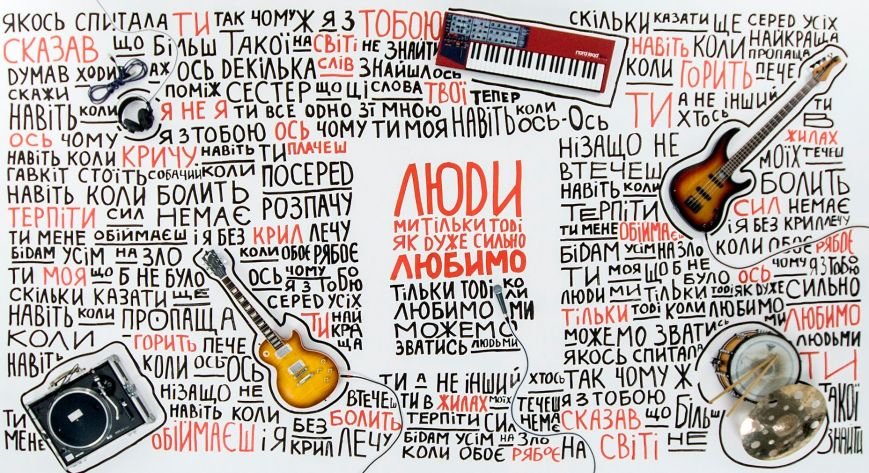 ЯКОСЬ СПИТАЛА ТИ ТАК ЧОМУ Ж Я З ТОБОЮ
СКАЗАВ ЩО БІЛЬШ ТАКОЇ НА СВІТІ НЕ ЗНАЙТИ
ДУМАВ ХОДИВ ОСЬ ДЕКІЛЬКА СЛІВ ЗНАЙШЛОСЬ
СКАЖИ ПОМІЖ СЕСТЕР ЩО ЦІ СЛОВА ТВОЇ ТЕПЕР
НАВІТЬ Я НЕ Я ТИ ВСЕ ОДНО ЗІ МНОЮ НАВІТЬ КОЛИ
ОСЬ ЧОМУ Я З ТОБОЮ ОСЬ ЧОМУ ТИ МОЯ НАВІТЬ ОСЬ-ОСЬ
НАВІТЬ КОЛИ КРИЧУ НАВІТЬ ТИ ПЛАЧЕШ
ГАВКІТ СТОЇТЬ СОБАЧИЙ КОЛИ ПОСЕРЕД
НАВІТЬ КОЛИ БОЛИТЬ РОЗПАЧУ
ТЕРПІТИ СИЛ НЕМАЄ
ТИ МЕНЕ ОБІЙМАЄШ І Я БЕЗ КРИЛ ЛЕЧУ
БІДАМ УСІМ НА ЗЛО КОЛИ ОБОЄ РЯБОЄ
ТИ МОЯ ЩО Б НЕ БУЛО ОСЬ ЧОМУ Я З ТОБОЮ
СКІЛЬКИ КАЗАТИ ЩЕ СЕРЕД УСІХ
НАВІТЬ КОЛИ ПРОПАЩА ТИ НАЙКРАЩА
КОЛИ ГОРИТЬ ПЕЧЕ
НАВІТЬ КОЛИ ОСЬ ОСЬ
НІЗАЩО НЕ ВТЕЧЕШ
НАВІТЬ КОЛИ БОЛИТЬ
ТИ МЕНЕ ОБІЙМАЄШ І Я БЕЗ КРИЛ ЛЕЧУ
СКІЛЬКИ КАЗАТИ ЩЕ СЕРЕД УСІХ
НАВІТЬ КОЛИ НАЙКРАЩА ПРОПАЩА
КОЛИ ГОРИТЬ ПЕЧЕ
ТИ А НЕ ІНШИЙ ХТОСЬ ТИ В ЖИЛАХ
НІЗАЩО НЕ МОЇХ ТЕЧЕШ
ВТЕЧЕШ
НАВІТЬ КОЛИ БОЛИТЬ
ТЕРПІТИ СИЛ НЕМАЄ
ТИ МЕНЕ ОБІЙМАЄШ І Я БЕЗ КРИЛ ЛЕЧУ
БІДАМ УСІМ НА ЗЛО КОЛИ ОБОЄ РЯБОЄ
ТИ МОЯ ЩО Б НЕ БУЛО ОСЬ ЧОМУ Я З ТОБОЮ
ЛЮДИ МИ ТІЛЬКИ ТОДІ ЯК ДУЖЕ СИЛЬНО
ТІЛЬКИ ТОДІ КОЛИ ЛЮБИМО ЛЮБИМО
МОЖЕМО ЗВАТИСЬ ЛЮДЬМИ
ЯКОСЬ СПИТАЛА ТИ
ТАК ЧОМУ Ж
Я З ТОБОЮ
СКАЗАВ ЩО БІЛЬШ ТАКОЇ
НА СВІТІ НЕ ЗНАЙТИ
ЛЮДИ
МИ ТІЛЬКИ ТОДІ
ЯК ДУЖЕ СИЛЬНО
ЛЮБИМО
ТІЛЬКИ ТОДІ КОЛИ
ЛЮБИМО МИ
МОЖЕМО
ЗВАТИСЬ ЛЮДЬМИ
ТИ А НЕ ІНШИЙ ХТОСЬ
ТИ В ЖИЛАХ МОЇХ ТЕЧЕШ
ТЕРПІТИ СИЛ НЕМА
БІДАМ УСІМ НА ЗЛО
КОЛИ ОБОЄ РЯБОЄ
nord lead